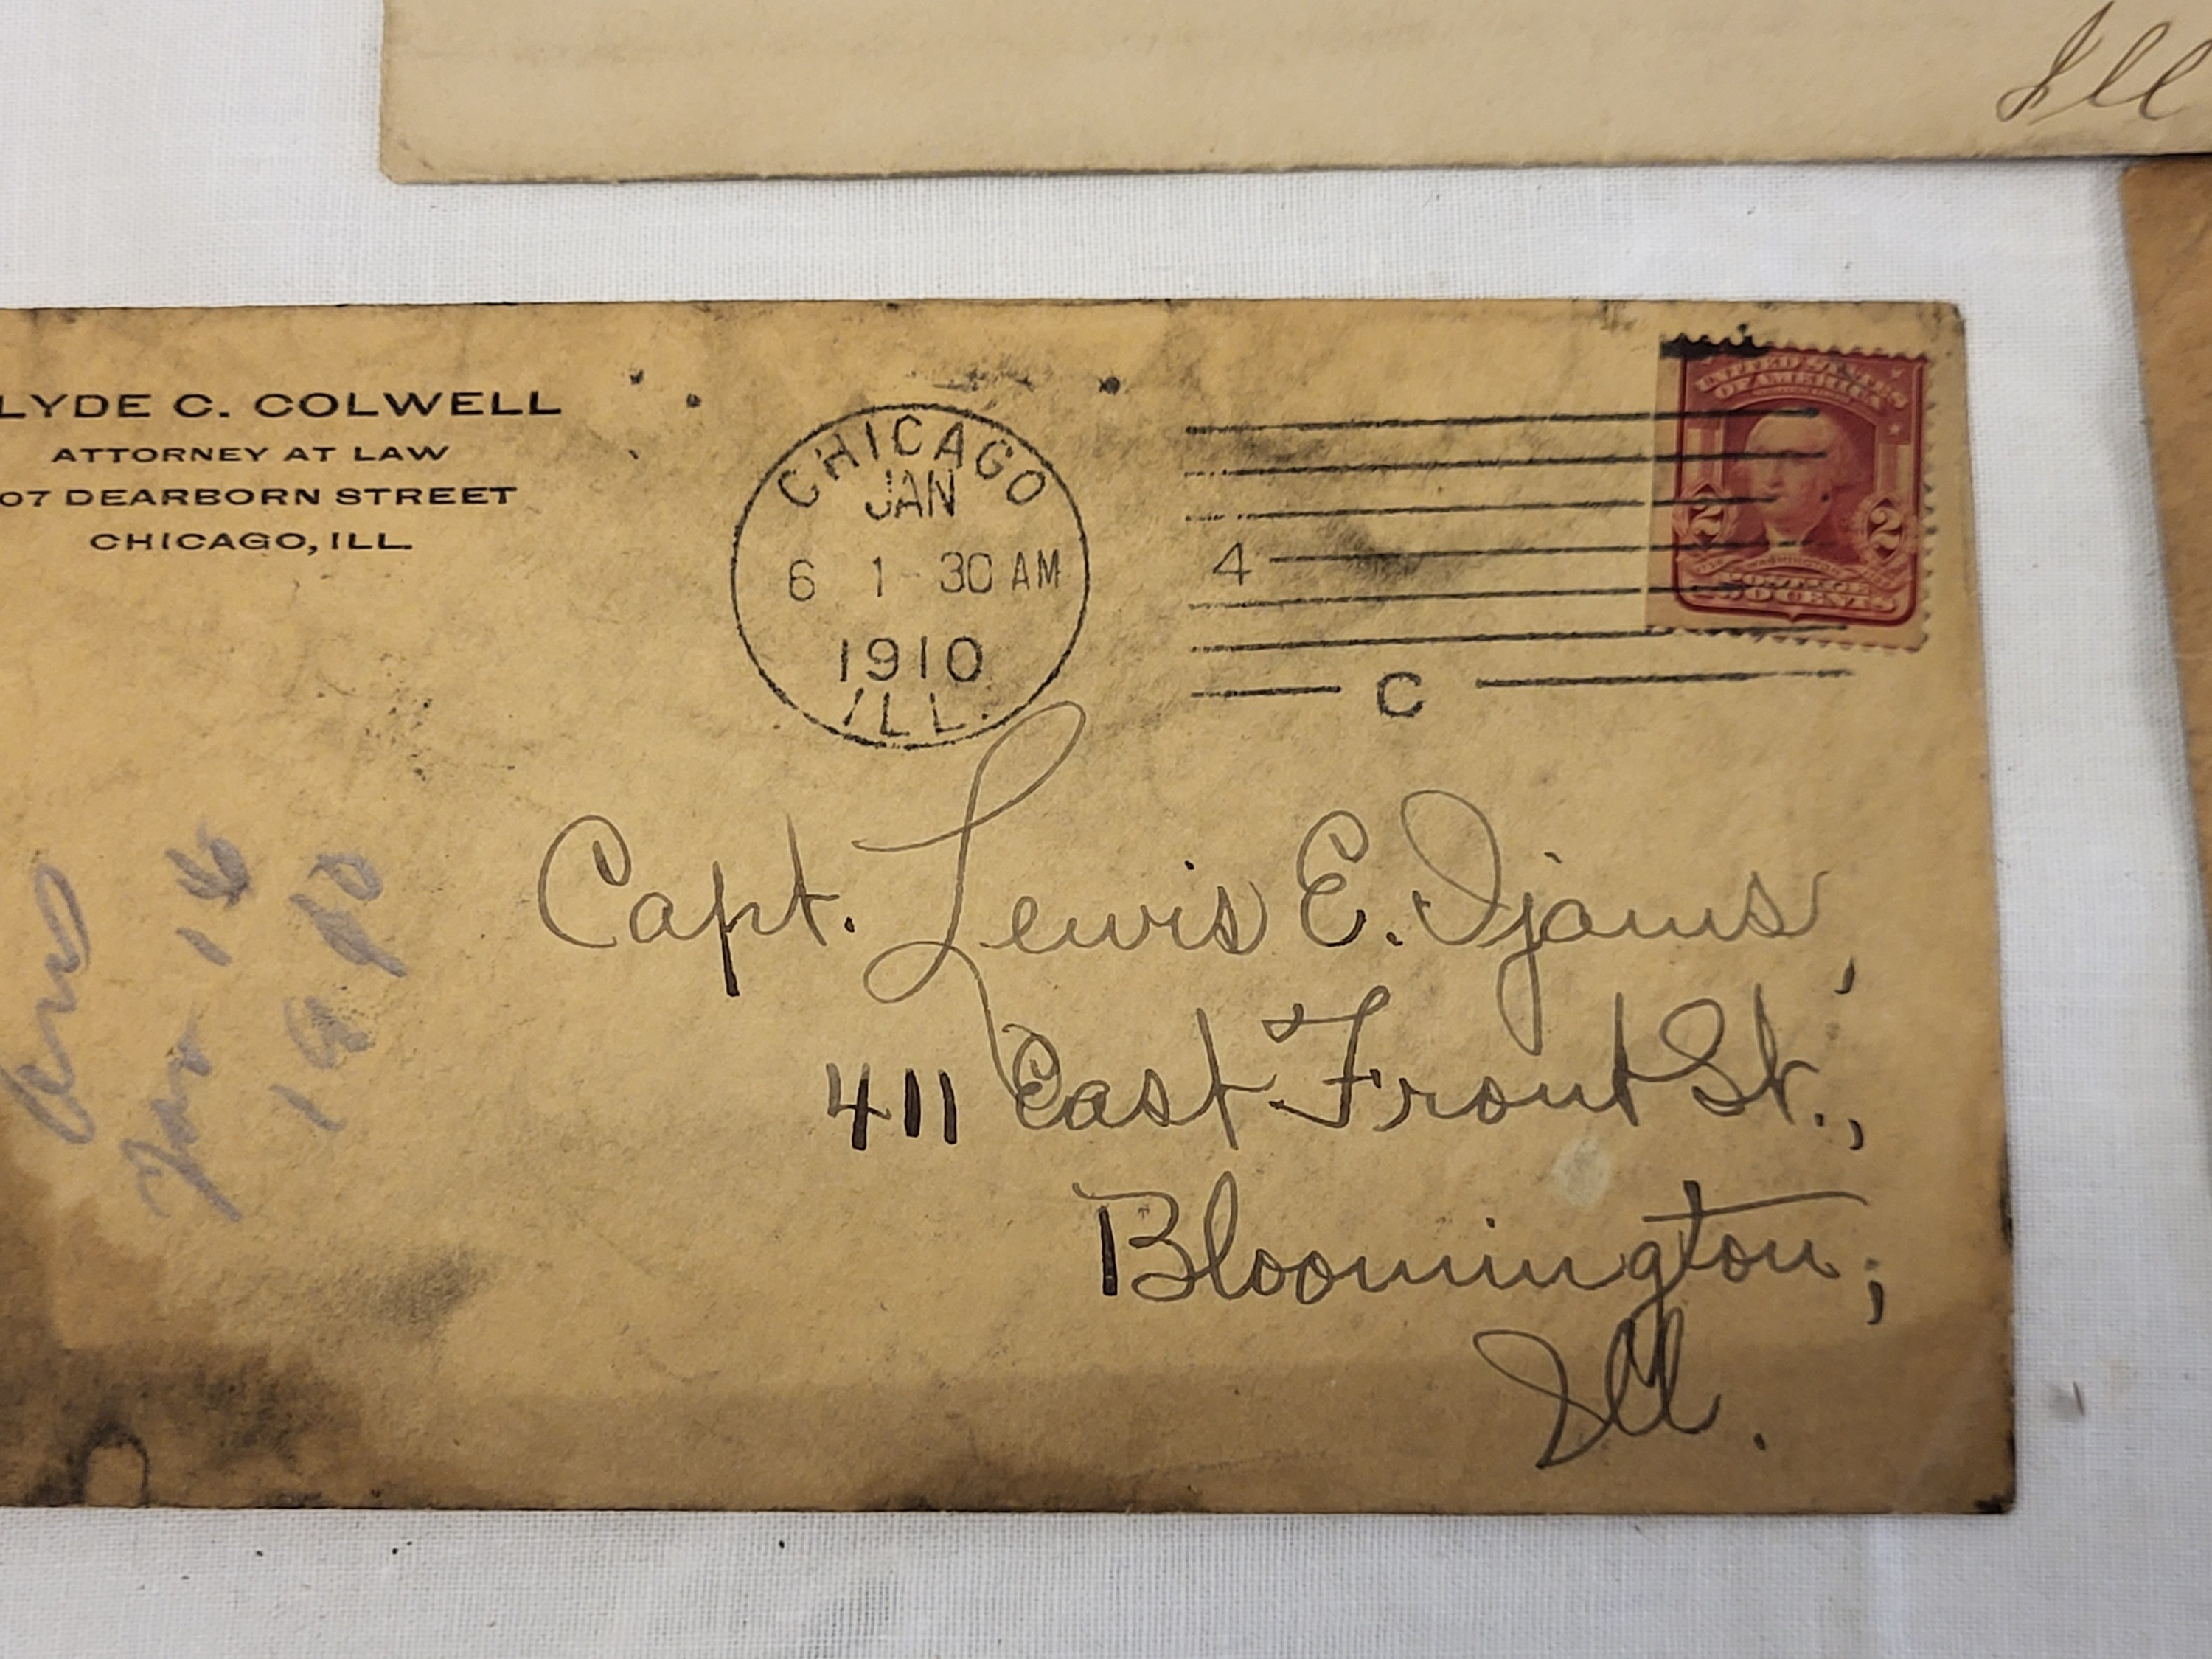 Ill
LYDE C. COLWELL
ATTORNEY AT LAW
07 DEARBORN STREET
CHICAGO, ILL.
CHICAGO
JAN
6 1-30 AM
1910
ILL.
4
C
UNITED STATES
OF AMERICA
2 2
TWO CENTS
Capt. Lewis E. Ijams,
411 East Front St.,
Bloomington,
Ill.
Ans
Jan 14
1910